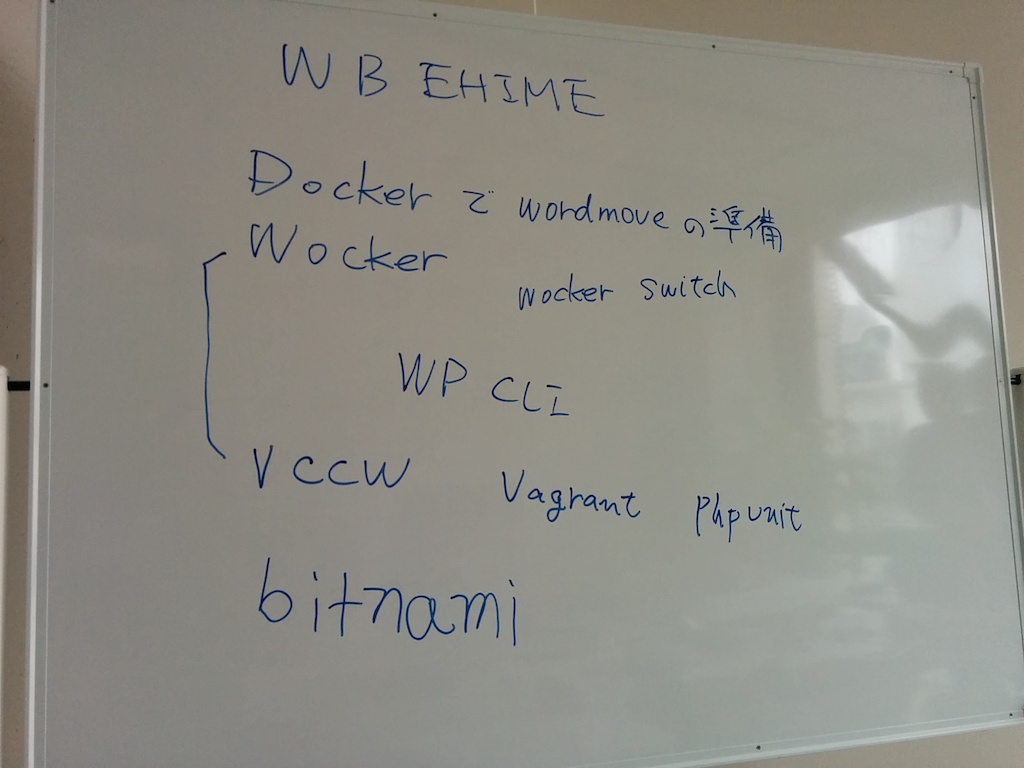 WB EHIME
Docker で wordmoveの準備
Wocker
wocker switch
WP CLI
VCCW Vagrant phpunit
bitnami